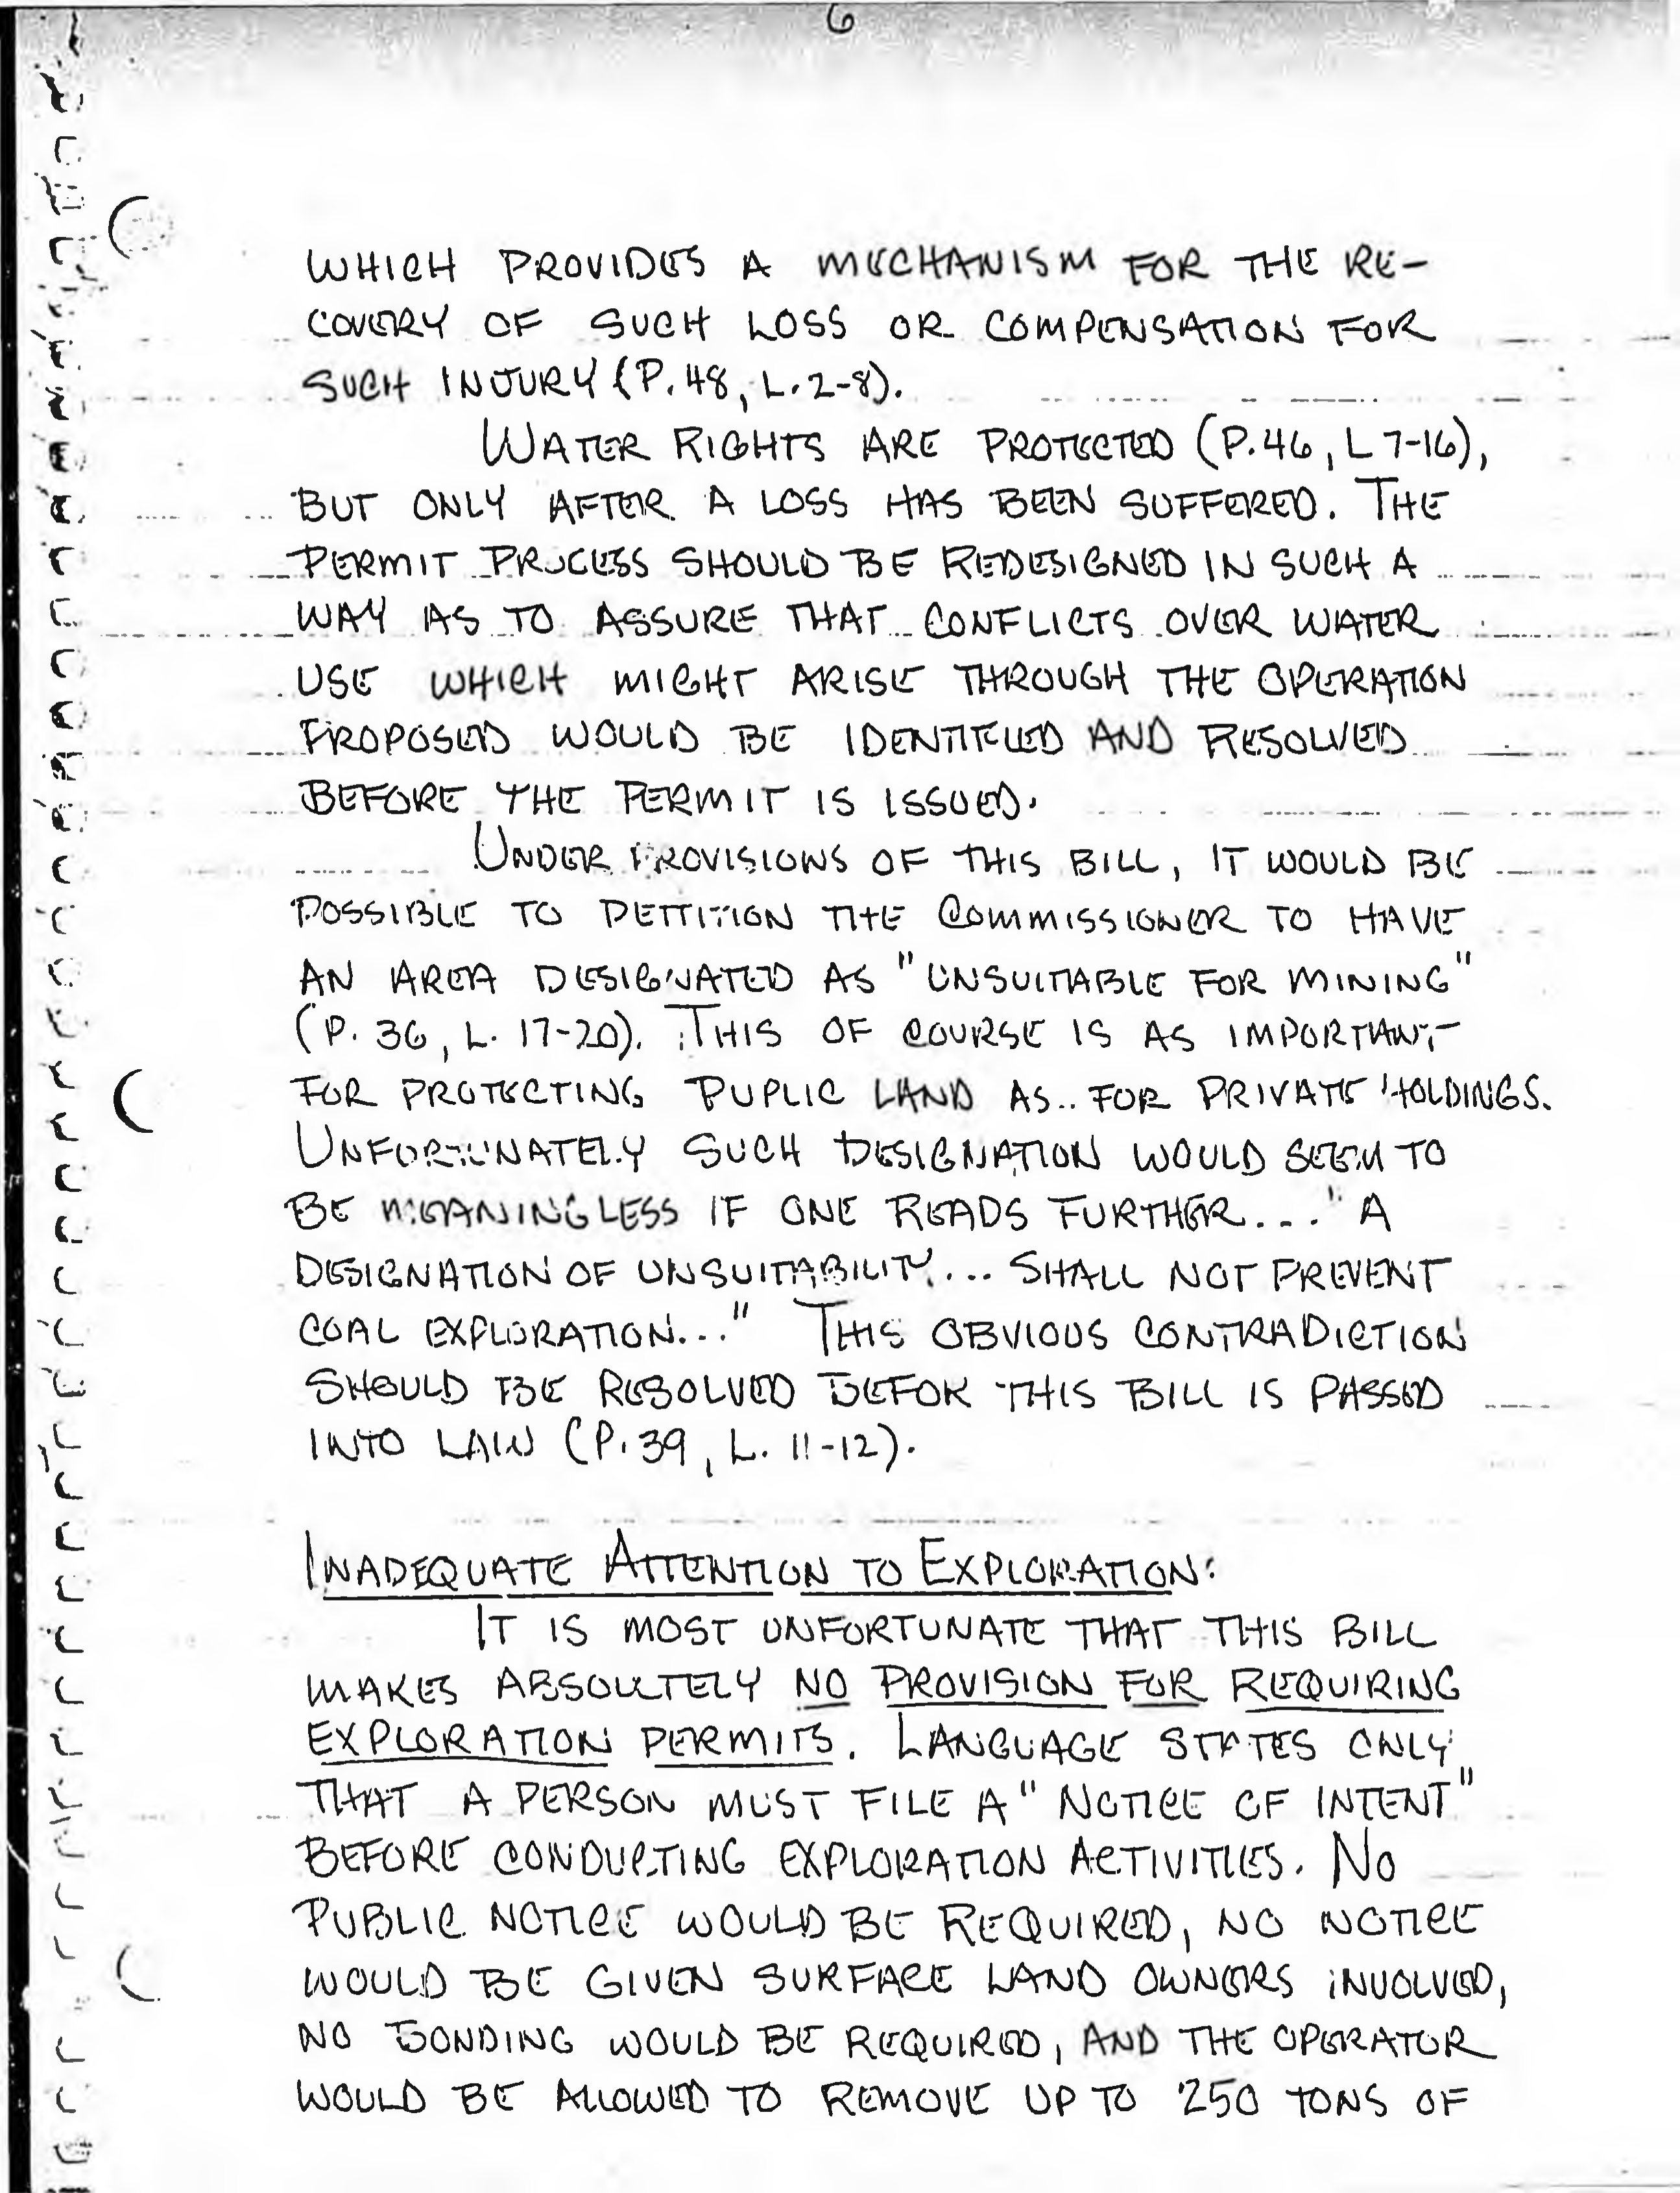 6
WHICH PROVIDES A MECHANISM FOR THE RE-
COVERY OF SUCH LOSS OR COMPENSATION FOR
SUCH INJURY (P. 48, L. 2-8).
WATER RIGHTS ARE PROTECTED (P. 46, L 7-16),
BUT ONLY AFTER A LOSS HAS BEEN SUFFERED. THE
PERMIT PROCESS SHOULD BE REDESIGNED IN SUCH A
WAY AS TO ASSURE THAT CONFLICTS OVER WATER
USE WHICH MIGHT ARISE THROUGH THE OPERATION
PROPOSED WOULD BE IDENTIFIED AND RESOLVED
BEFORE THE PERMIT IS ISSUED.
UNDER PROVISIONS OF THIS BILL, IT WOULD BE
POSSIBLE TO PETITION THE COMMISSIONER TO HAVE
AN AREA DESIGNATED AS "UNSUITABLE FOR MINING"
(P. 36, L. 17-20). THIS OF COURSE IS AS IMPORTANT
FOR PROTECTING PUPLIC LAND AS FOR PRIVATE HOLDINGS.
UNFORTUNATELY SUCH DESIGNATION WOULD SEEM TO
BE MEANINGLESS IF ONE READS FURTHER... "A
DESIGNATION OF UNSUITABILITY... SHALL NOT PREVENT
COAL EXPLORATION..." THIS OBVIOUS CONTRADICTION
SHOULD BE RESOLVED BEFOR THIS BILL IS PASSED
INTO LAW (P. 39, L. 11-12).
INADEQUATE ATTENTION TO EXPLORATION:
IT IS MOST UNFORTUNATE THAT THIS BILL
MAKES ABSOLUTELY NO PROVISION FOR REQUIRING
EXPLORATION PERMITS. LANGUAGE STATES ONLY
THAT A PERSON MUST FILE A "NOTICE OF INTENT"
BEFORE CONDUCTING EXPLORATION ACTIVITIES. NO
PUBLIC NOTICE WOULD BE REQUIRED, NO NOTICE
WOULD BE GIVEN SURFACE LAND OWNERS INVOLVED,
NO BONDING WOULD BE REQUIRED, AND THE OPERATOR
WOULD BE ALLOWED TO REMOVE UP TO 250 TONS OF